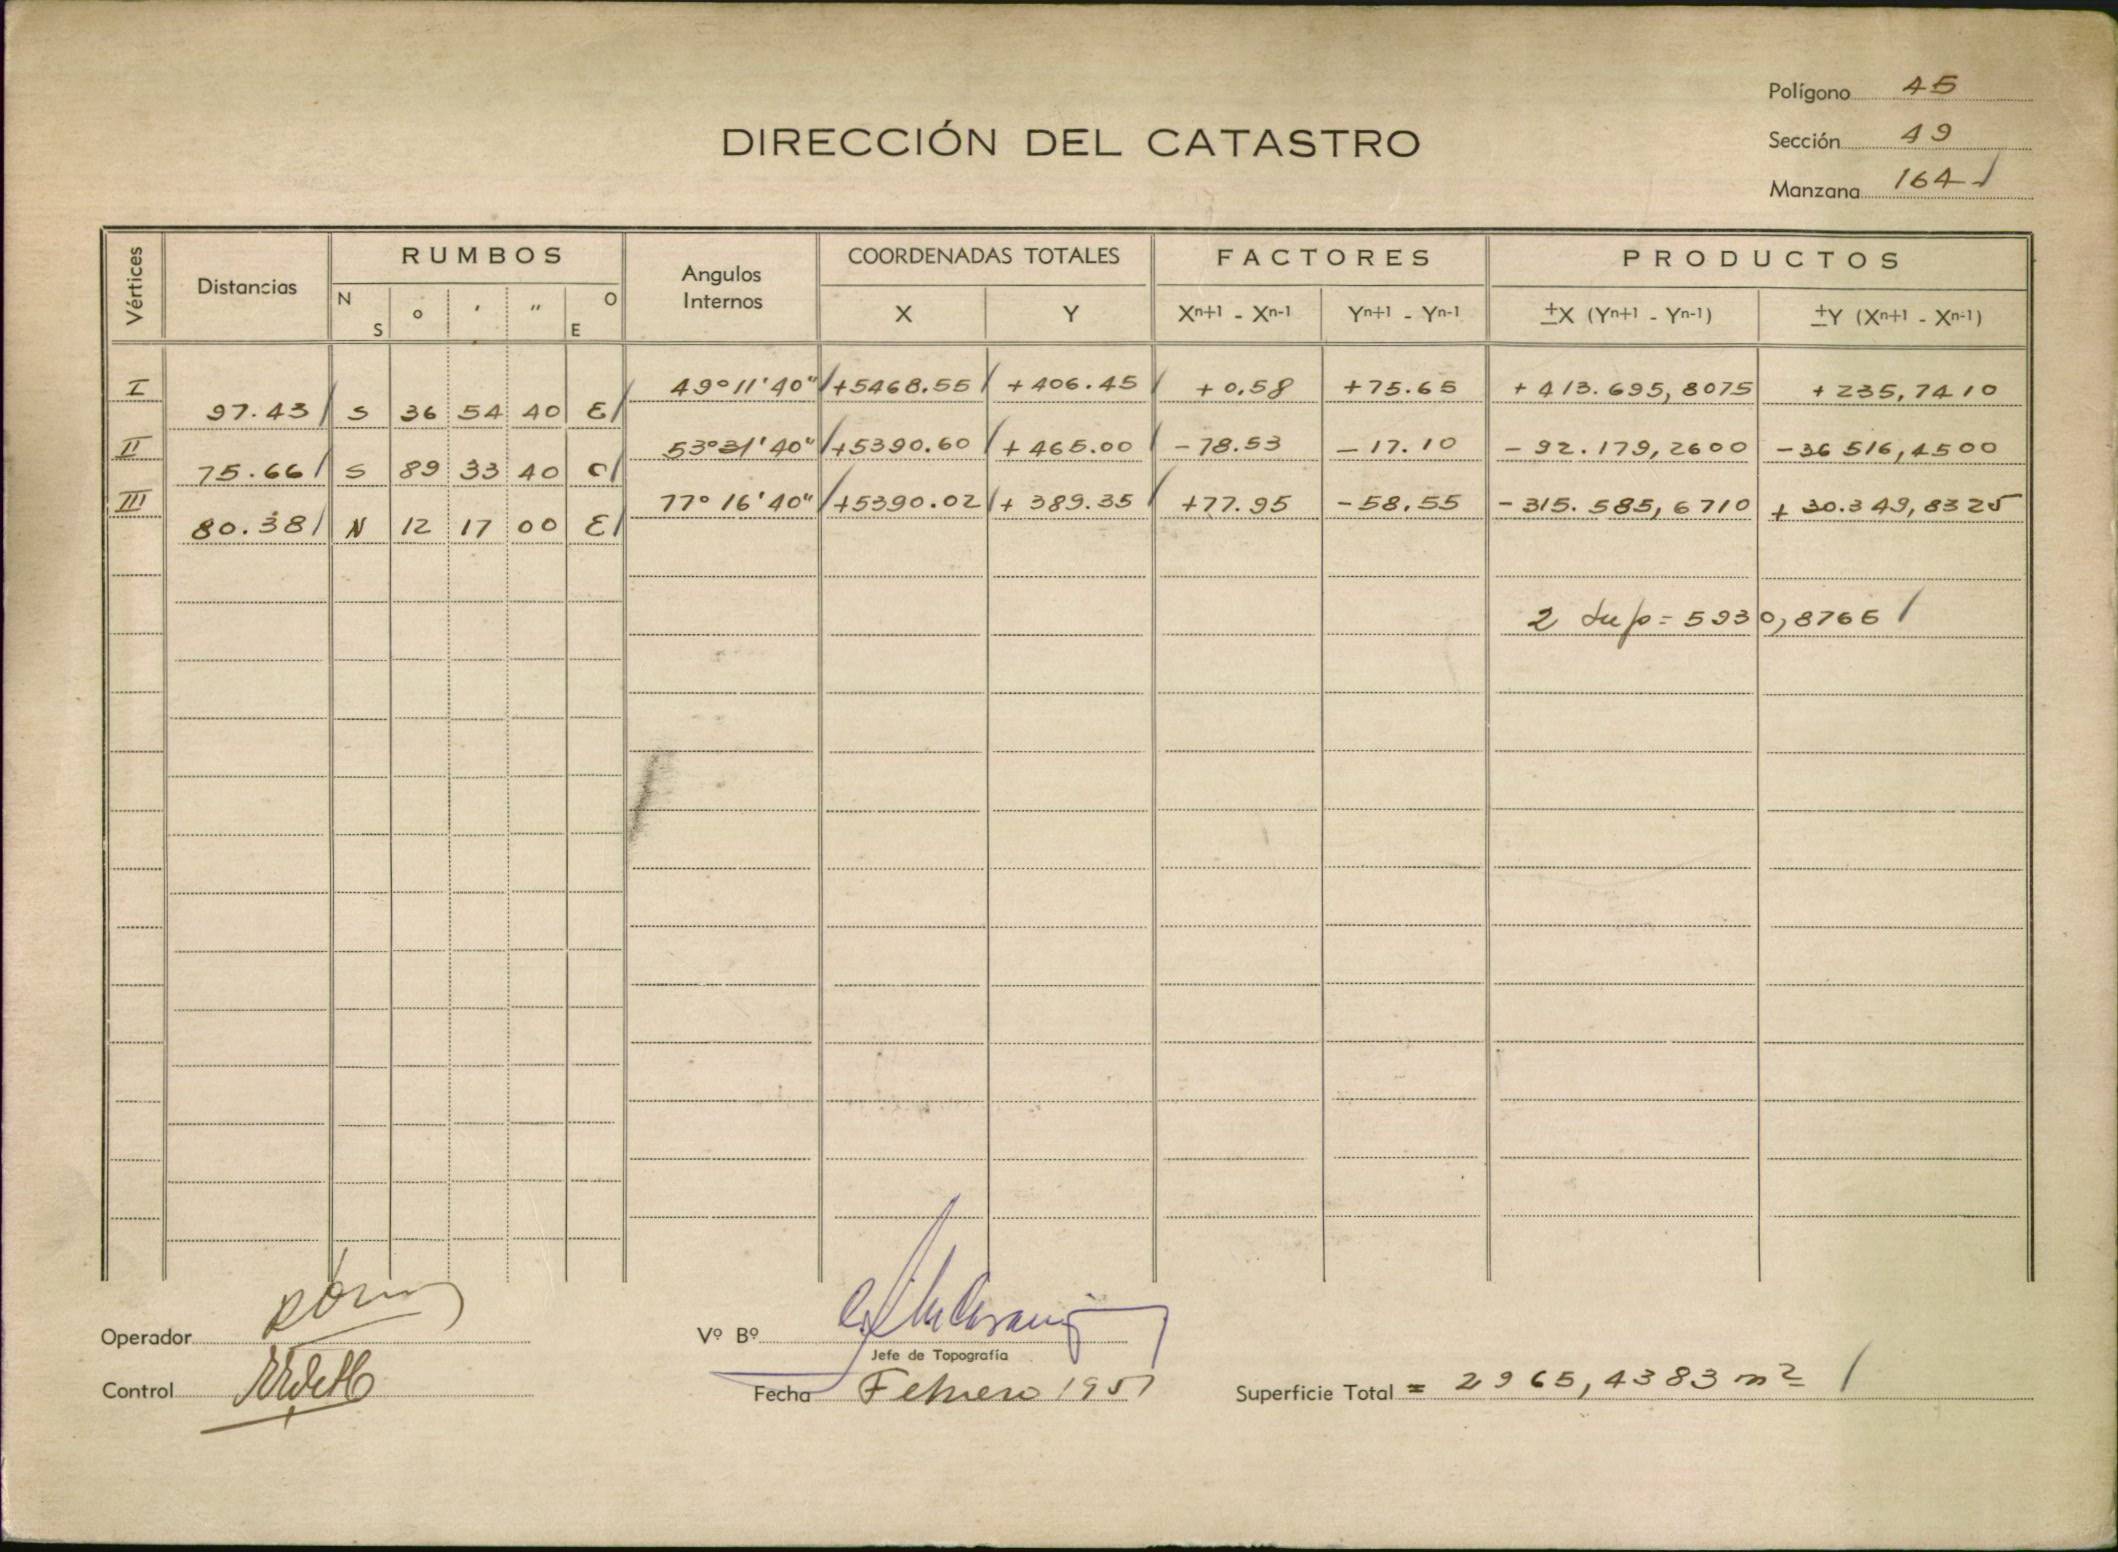 Polígono 45
DIRECCIÓN DEL CATASTRO
Sección 49
Manzana 164
Vértices Distancias RUMBOS Angulos Internos COORDENADAS TOTALES FACTORES PRODUCTOS
N S ° ' " O E X Y Xn+1 - Xn-1 Yn+1 - Yn-1 ±X (Yn+1 - Yn-1) ±Y (Xn+1 - Xn-1)
I 49°11'40" +5468.55 +406.45 +0,58 +75.65 +413.695,8075 +235,7410
97.43 S 36 54 40 E
II 53°31'40" +5390.60 +465.00 -78.53 -17.10 -92.179,2600 -36516,4500
75.66 S 89 33 40 O
III 77°16'40" +5390.02 +389.35 +77.95 -58.55 -315.585,6710 +30.349,8325
80.38 N 12 17 00 E
2 Sup = 5930,8766
Operador
Vº Bº
Jefe de Topografía
Control
Fecha Febrero 1951
Superficie Total = 2965,4383 m²